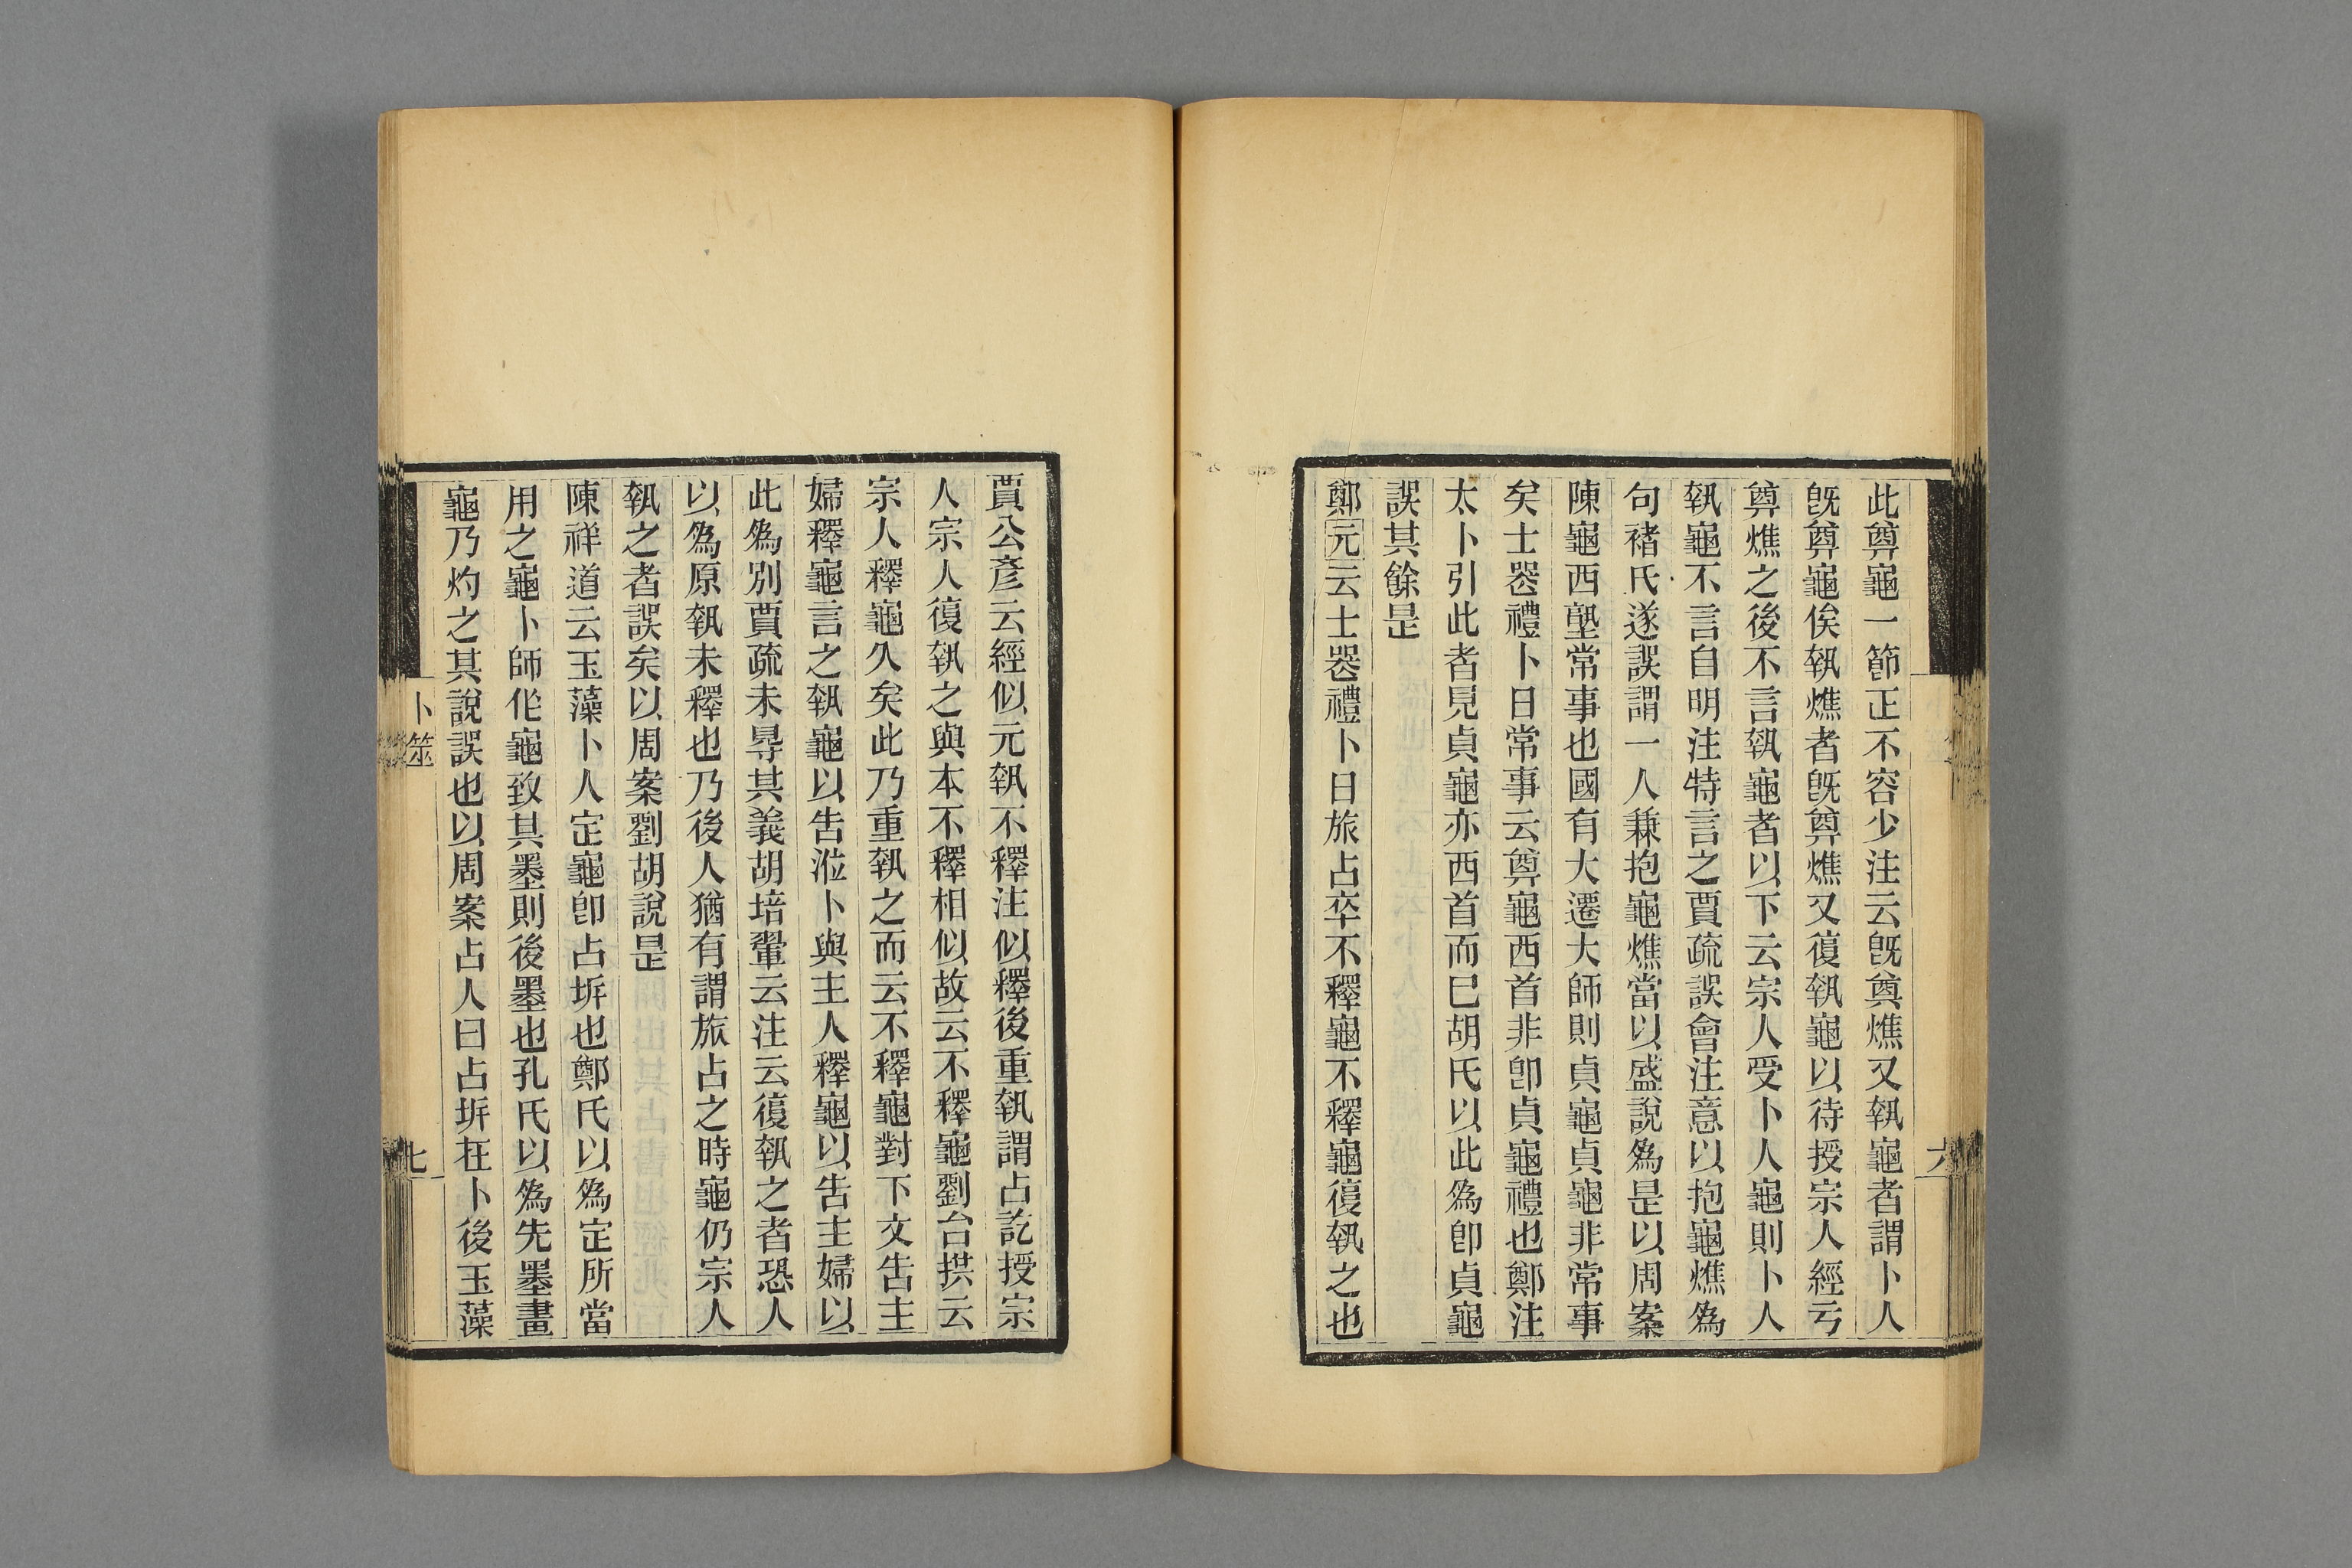 此奠龜一節正不容少注云旣奠燋又執龜者謂卜人
旣奠龜俟執燋者旣奠燋又復執龜以待授宗人經亏
奠燋之後不言執龜者以下云宗人受卜人龜則卜人
執龜不言自明注特言之賈疏誤會注意以抱龜燋爲
句褚氏遂誤謂一人兼抱龜燋當以盛說爲是以周案
陳龜西塾常事也國有大遷大師則貞龜貞龜非常事
矣士喪禮卜日常事云奠龜西首非卽貞龜禮也鄭注
太卜引此者見貞龜亦西首而已胡氏以此爲卽貞龜
誤其餘是
鄭元云士喪禮卜日旅占卒不釋龜不釋龜復執之也
賈公彥云經似元執不釋注似釋後重執謂占訖授宗
人宗人復執之與本不釋相似故云不釋龜劉台拱云
宗人釋龜久矣此乃重執之而云不釋龜對下文告主
婦釋龜言之執龜以告涖卜與主人釋龜以告主婦以
此爲別賈疏未㝵其義胡培翬云注云復執之者恐人
以爲原執未釋也乃後人猶有謂旅占之時龜仍宗人
執之者誤矣以周案劉胡說是
陳祥道云玉藻卜人定龜卽占坼也鄭氏以爲定所當
用之龜卜師作龜致其墨則後墨也孔氏以爲先墨畫
龜乃灼之其說誤也以周案占人曰占坼在卜後玉藻
卜筮
七
六